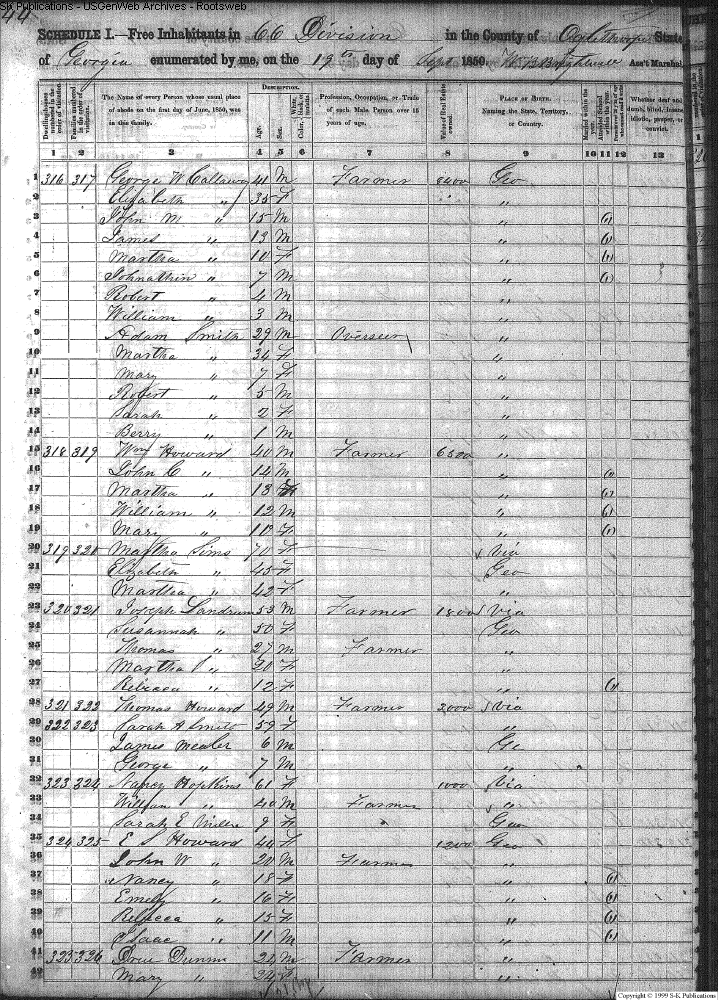 SK Publications - USGenWeb Archives - Rootsweb
44
SCHEDULE I.—Free Inhabitants in 66 Division in the County of Oglethorpe State
of Georgia enumerated by me, on the 19th day of Sept 1850. Ass't Marshal.
DESCRIPTION.
Dwelling-houses numbered in the order of visitation
Families numbered in the order of visitation.
The Name of every Person whose usual place of abode on the first day of June, 1850, was in this family.
Age.
Sex.
Profession, Occupation, or Trade of each Male Person over 15 years of age.
Value of Real Estate owned.
PLACE OF BIRTH. Naming the State, Territory, or Country.
Married within the year.
1 2 3 4 5 6 7 8 9 10 11 12 13
1 316 317 George W Callaway 41 M Farmer 8400 Geo
2 Elizabeth " 35 F "
3 John M " 15 M " (1)
4 James " 13 M " (1)
5 Martha " 10 F " (1)
6 Johnathin " 7 M " (1)
7 Robert " 4 M "
8 William " 3 M "
9 Adam Smith 29 M Overseer "
10 Martha " 34 F "
11 Mary " 7 F "
12 Robert " 5 M "
13 Sarah " 2 F "
14 Berry " 1 M "
15 318 319 Wm Howard 40 M Farmer 6500 "
16 John C " 14 M " (1)
17 Martha " 13 F " (1)
18 William " 12 M " (1)
19 Mary " 10 F " (1)
20 319 320 Martha Sims 70 F Via
21 Elizabeth " 45 F Geo
22 Martha " 42 F "
23 320 321 Joseph Landrum 53 M Farmer 1800 Via
24 Susannah " 50 F Geo
25 Thomas " 27 M Farmer "
26 Martha " 20 F "
27 Rebecca " 12 F " (1)
28 321 322 Thomas Howard 49 M Farmer 2000 Via
29 322 323 Sarah A Smith 59 F "
30 James Mealer 6 M Ge
31 George " 7 M "
32 323 324 Nancy Hopkins 61 F 1000 Via
33 William " 40 M Farmer "
34 Sarah E 9 F Geo
35 324 325 E S Howard 44 F 1200 Geo
36 John W " 20 M Farmer "
37 Nancy " 18 F " (1)
38 Emely " 16 F " (1)
39 Rebecca " 15 F " (1)
40 Isaac " 11 M " (1)
41 325 326 Drew 24 M Farmer "
42 Mary " 24 F "
Copyright © 1999 S-K Publications